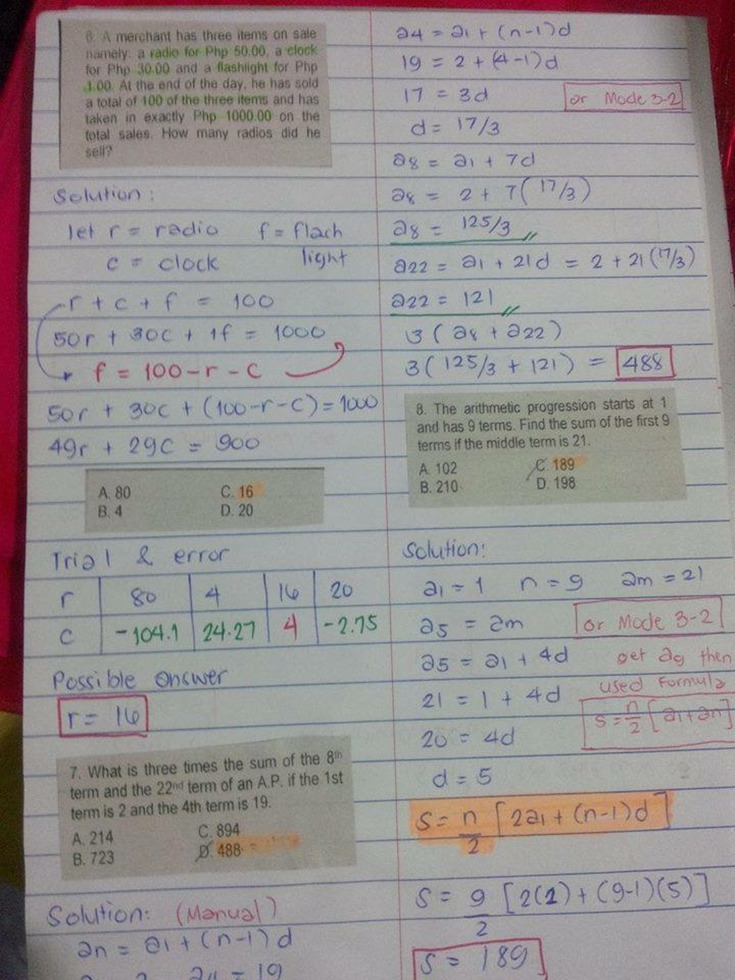 6. A merchant has three items on sale
namely: a radio for Php 50.00, a clock
for Php 30.00 and a flashlight for Php
1.00. At the end of the day, he has sold
a total of 100 of the three items and has
taken in exactly Php 1000.00 on the
total sales. How many radios did he
sell?
Solution:
let r = radio f = flach
c = clock light
r + c + f = 100
50r + 30c + 1f = 1000
f = 100 - r - c
50r + 30c + (100-r-c) = 1000
49r + 29c = 900
A. 80 C. 16
B. 4 D. 20
Trial & error
r 80 4 16 20
c -104.1 24.27 4 -2.75
Possible answer
r = 16
7. What is three times the sum of the 8th
term and the 22nd term of an A.P. if the 1st
term is 2 and the 4th term is 19.
A. 214 C. 894
B. 723 D. 488
Solution: (Manual)
an = a1 + (n-1)d
a4 = 19
a4 = a1 + (n-1)d
19 = 2 + (4-1)d
17 = 3d
or Mode 3-2
d = 17/3
a8 = a1 + 7d
a8 = 2 + 7(17/3)
a8 = 125/3
a22 = a1 + 21d = 2 + 21(17/3)
a22 = 121
3(a8 + a22)
3(125/3 + 121) = 488
8. The arithmetic progression starts at 1
and has 9 terms. Find the sum of the first 9
terms if the middle term is 21.
A. 102 C. 189
B. 210 D. 198
Solution:
a1 = 1 n = 9 am = 21
a5 = am
or Mode 3-2
a5 = a1 + 4d
get a9 then
used Formula
21 = 1 + 4d
S = n/2 [a1+an]
20 = 4d
d = 5
S = n/2 [2a1 + (n-1)d]
S = 9/2 [2(1) + (9-1)(5)]
S = 189